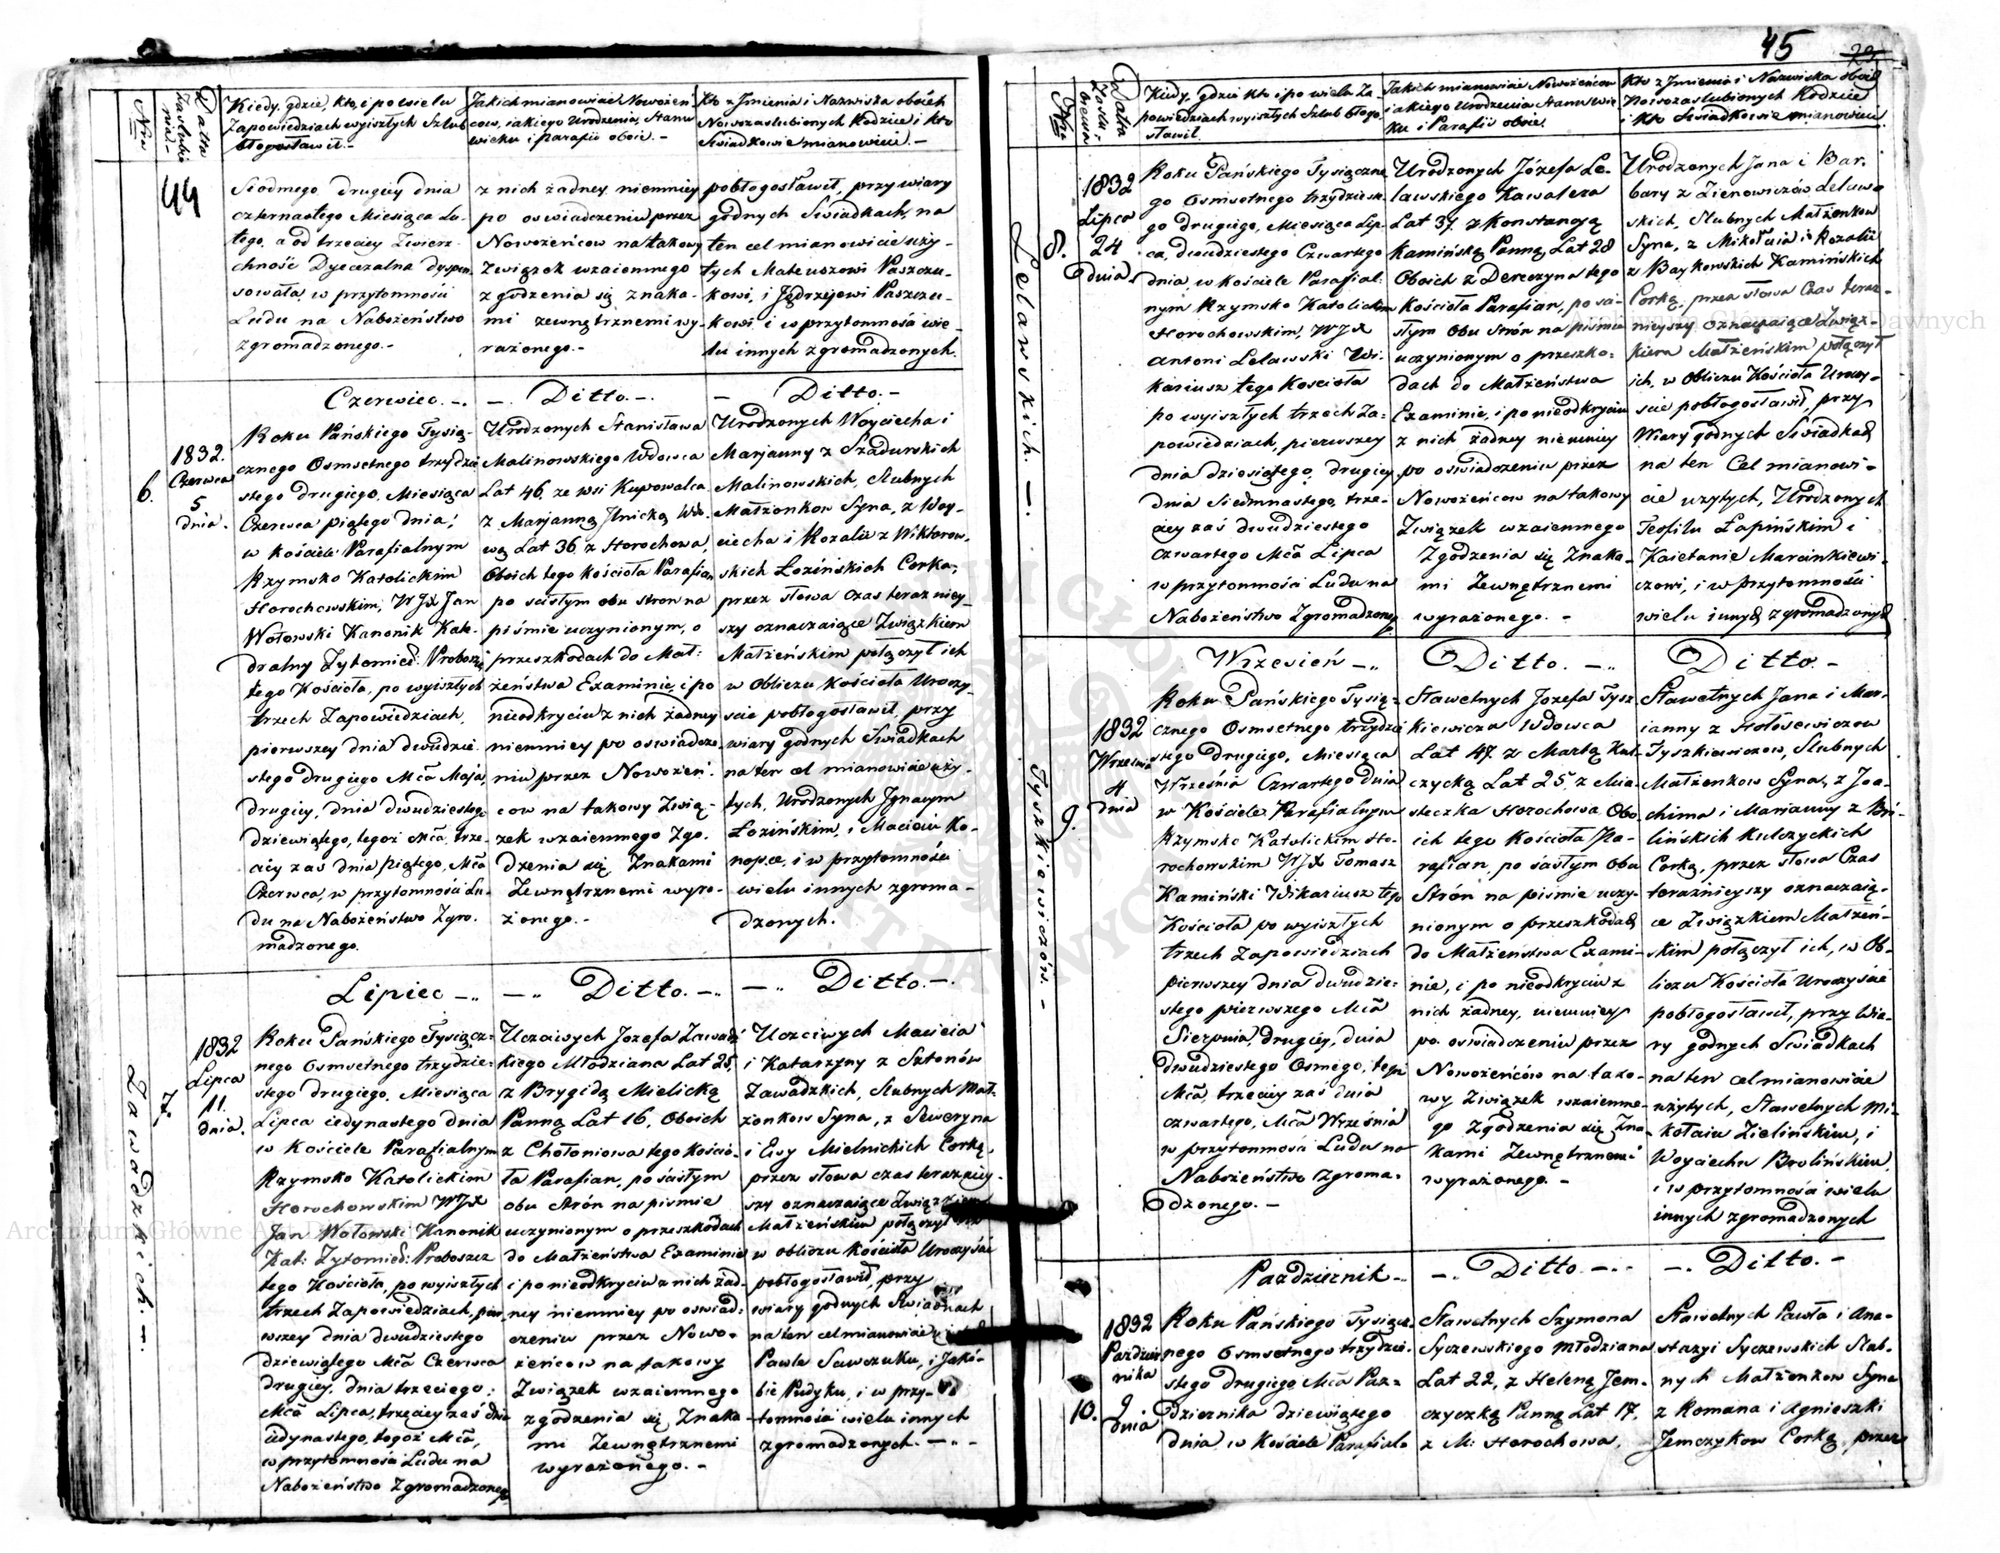 Nru
Datta zaślubienia.
Kiedy, gdzie, kto, i po wielu
Zapowiedziach wyiszłych Szlub
błogosławił. -
Jakich mianowicie Nowożeń
cow, iakiego Urodzenia, Stanu
wieku i Parafii oboie. -
Kto z Jmienia i Nazwiska oboich
Nowozaslubionych Rodzice i kto
Swiadkowie mianowicie. -
44
Siodmego, drugiey dnia
czternastego Miesiąca Lu-
tego, a od trzeciey Zwierz-
chność Dyecezalna dyspen-
sowała w przytomności
Ludu na Nabożeństwo
zgromadzonego. -
z nich żadney, niemniey
po oswiadczeniu przez
Nowożeńcow na takowy
Związek wzaiemnego
zgodzenia się znaka-
mi zewnętrznemi wy-
rażonego. -
pobłogosławił, przy wiary
godnych Swiadkach, na
ten cel mianowicie uży-
tych Mateuszowi Paszczu-
kowi, i Jędrzejowi Paszczu-
kowi i w przytomności wie-
lu innych zgromadzonych.
Czerwiec. -.
-. Ditto. -.
- Ditto. -
6.
1832.
Czerwca
5
dnia.
Roku Pańskiego Tysią-
cznego Osmsetnego trzydzie
stego drugiego, Miesiąca
Czerwca piątego dnia;
w Kościele Parafialnym
Rzymsko Katolickim
Horochowskim, WJX Jan
Wołowski Kanonik Kate-
dralny Żytomier: Proboszcz
tego Kościoła, po wyiszłych
trzech Zapowiedziach,
pierwszey dnia dwudzie-
stego drugiego Mca Maja,
drugiey, dnia dwudziestego
dziewiątego, tegoż Mca, trze-
ciey zaś dnia piątego, Mca
Czerwca, w przytomności Lu-
du na Nabożeństwo Zgro-
madzonego.
Urodzonych Stanisława
Malinowskiego Wdowca
Lat 46, ze wsi Kupowalca
z Marjanną Jlnicką Wdo-
wą Lat 36 z Horochowa,
Oboich tego Kościoła Parafian
po scisłym obu stron na
piśmie uczynionym, o
przeszkodach do Mał-
żeństwa Examinie, i po
nieodkryciu z nich żadney
niemniey po oswiadcze-
niu przez Nowożeń-
cow na takowy Zwią-
zek wzaiemnego Zgo-
dzenia się Znakami
Zewnętrznemi wyra-
żonego. -
Urodzonych Woyciecha i
Marjanny z Szadurskich
Malinowskich, Slubnych
Małżonkow Syna, z Woy-
ciecha i Rozalii z Wiktorow-
skich Łozińskich Corka,
przez słowa czas teraz niey-
szy oznaczaiące Związkiem
Małżeńskim połączył ich
w Obliczu Kościoła Uroczy-
scie pobłogosławił, przy
wiary godnych Swiadkach
na ten cel mianowicie uży-
tych, Urodzonych Jgnacym
Łozińskim, i Macieiu Ko-
nopce, i w przytomności
wielu innych zgroma-
dzonych.
Lipiec -..
-.. Ditto. -..
-.. Ditto. -.
Zawadzkich. -.
7.
1832
Lipca
11.
dnia.
Roku Pańskiego Tysiącz-
nego Osmsetnego trzydzie-
stego drugiego, Miesiąca
Lipca iedynastego dnia
w Kościele Parafialnym
Rzymsko Katolickim
Horochowskim WJX
Jan Wołowski Kanonik
Kat: Żytomier: Proboszcz
tego Kościoła, po wyiszłych
trzech Zapowiedziach, pier
wszey dnia dwudziestego
dziewiątego Mca Czerwca
drugiey, dnia trzeciego;
Mca Lipca, trzeciey zaś dnia
iedynastego, tegoż Mca,
w przytomności Ludu na
Nabożeństwo Zgromadzonego
Uczciwych Jozefa Zawadz
kiego Młodziana Lat 25,
z Brygidą Mielicką
Panną Lat 16, Oboich
z Chołoniowa tego Kościo-
ła Parafian, po scisłym
obu Strón na piśmie
uczynionym o przeszkodach
do Małżeństwa Examinie
i po nieodkryciu z nich żad-
ney niemniey po oswiad-
czeniu przez Nowo-
żeńcow na takowy
Związek wzaiemnego
zgodzenia się Znaka
mi Zewnętrznemi
wyrażonego. -
Uczciwych Macieia
i Katarzyny z Sztonów
Zawadzkich, Slubnych Mał-
żonkow Syna, z Seweryna
i Ewy Mielnickich Corką,
przez słowa czas teraz niey-
szy oznaczaiące Związkiem
Małżeńskim połączył ich
w obliczu Kościoła Uroczyście
pobłogosławił, przy
wiary godnych Swiadkach
na ten cel mianowicie
Pawle Sawczuku, i Jakó-
bie Pudyku, i w przy-
tomności wielu innych
zgromadzonych. -
45
Nru
Datta Zaślubienia
Kiedy, gdzie kto i po wielu Za
powiedziach wyiszłych Szlub błogo
sławił.
Jakich mianowicie Nowożeńcow
iakiego Urodzenia Stanu wie
ku i Parafii oboie.
Kto z Jmienia i Nazwiska oboich
Nowozaslubionych Rodzice
i kto Swiadkowie mianowicie.
Lelawskich. -.
8.
1832
Lipca
24
dnia.
Roku Pańskiego Tysiączne
go Osmsetnego trzydziest
go drugiego, Miesiąca Lip-
ca, dwudziestego Czwartego
dnia, w Kościele Parafial-
nym Rzymsko Katolickim
Horochowskim, WJX
Antoni Lelawski Wi-
kariusz tego Kosciola
po wyiszłych trzech Za-
powiedziach, pierwszey
dnia dziesiątego, drugiey
dnia Siedmnastego, trze-
ciey zaś dwudziestego
czwartego Mca Lipca
w przytomności Ludu na
Nabożeństwo Zgromadzonego
Urodzonych Józefa Le-
lawskiego Kawalera
Lat 37. z Konstancyą
Kamińską Panną, Lat 28
Oboich z Dereczyna tego
Kościoła Parafian, po sci-
słym Obu Strón na piśmie
uczynionym o przeszko-
dach do Małżeństwa
Examinie, i po nieodkryciu
z nich żadney niemniey
po oswiadczeniu przez
Nowożeńcow na takowy
Związek wzaiemnego
Zgodzenia się Znaka-
mi Zewnętrznemi
wyrażonego. -
Urodzonych Jana i Bar-
bary z Zienowiczów Lelaw-
skich, Slubnych Małżonkow
Syna, z Mikołaia i Rozalii
z Baykowskich Kamińskich
Corką, przez słowa Czas teraz-
nieyszy oznaczaiące Związ-
kiem Małżeńskim połączył
ich, w Obliczu Kościoła Uroczy-
scie pobłogosławił, przy
Wiary godnych Swiadkach
na ten Cel mianowi-
cie użytych, Urodzonych
Teofilu Łapińskim i
Kaietanie Marcinkiewi-
czowi, i w przytomności
wielu innych zgromadzonych
Wrzesień -..
Ditto. -..
Ditto. -
Tyszkiewiczów. -
9.
1832
Wrzesnia
4
dnia
Roku Pańskiego Tysią-
cznego Osmsetnego trzydzie
stego drugiego, Miesiąca
Września Czwartego dnia
w Kościele Parafialnym
Rzymsko Katolickim Ho-
rochowskim WJX Tomasz
Kamiński Wikariusz tego
Kościoła po wyiszłych
trzech Zapowiedziach
pierwszey dnia dwudzie-
stego pierwszego Mca
Sierpnia, drugiey, dnia
dwudziestego Osmego, tegoż
Mca, trzeciey zaś dnia
czwartego, Mca Wrześnià
w przytomności Ludu na
Nabożeństwo Zgroma-
dzonego. -
Sławetnych Jozefa Tysz
kiewicza Wdowca
Lat 47. z Martą Kul-
czycką Lat 25, z Mia-
steczka Horochowa Obo
ich tego Kościoła Pa-
rafian, po scisłym Obu
Strón na piśmie uczy-
nionym o przeszkodach
do Małżeństwa Exami-
nie, i po nieodkryciu z
nich żadney, niemniey
po oswiadczeniu przez
Nowożeńców na tako-
wy Związek wzaiemne-
go Zgodzenia się Zna-
kami Zewnętrznemi
wyrażonego. -
Sławetnych Jana i Mar-
ianny z Hołosewiczow
Tyszkiewiczow, Slubnych
Małżonkow Syna, z Joa-
chima i Marianny z Bń-
lińskich Kulczyckich
Corką, przez słowa Czas
teraźnieyszy oznaczaią-
ce Związkiem Małżeń-
skim połączył ich, w Ob-
liczu Kościoła Uroczyście
pobłogosławił, przy Wia-
ry godnych Swiadkach
na ten cel mianowicie
użytych, Sławetnych Mi-
kołaiu Zielińskim, i
Woyciechu Brolińskim,
i w przytomności wielu
innych zgromadzonych
Pazdziernik -.
-. Ditto. -..
-. Ditto. -
10.
1832
Pazdzier
nika
9
dnia
Roku Pańskiego Tysiącz-
nego Osmsetnego trzydzie-
stego drugiego Mca Paz-
dziernika dziewiątego
dnia, w Kościele Parafial-
Sławetnych Szymona
Syczewskiego Młodziana
Lat 22, z Heleną Jem-
czyczką Panną Lat 17,
z M: Horochowa,
Sławetnych Pawła i Ana-
stazyi Syczewskich Slub-
nych Małżonkow Syna
z Romana i Agnieszki
Jemczykow Corką, przez
Archiwum Główne Akt Dawnych
Archiwum Główne Akt Dawnych